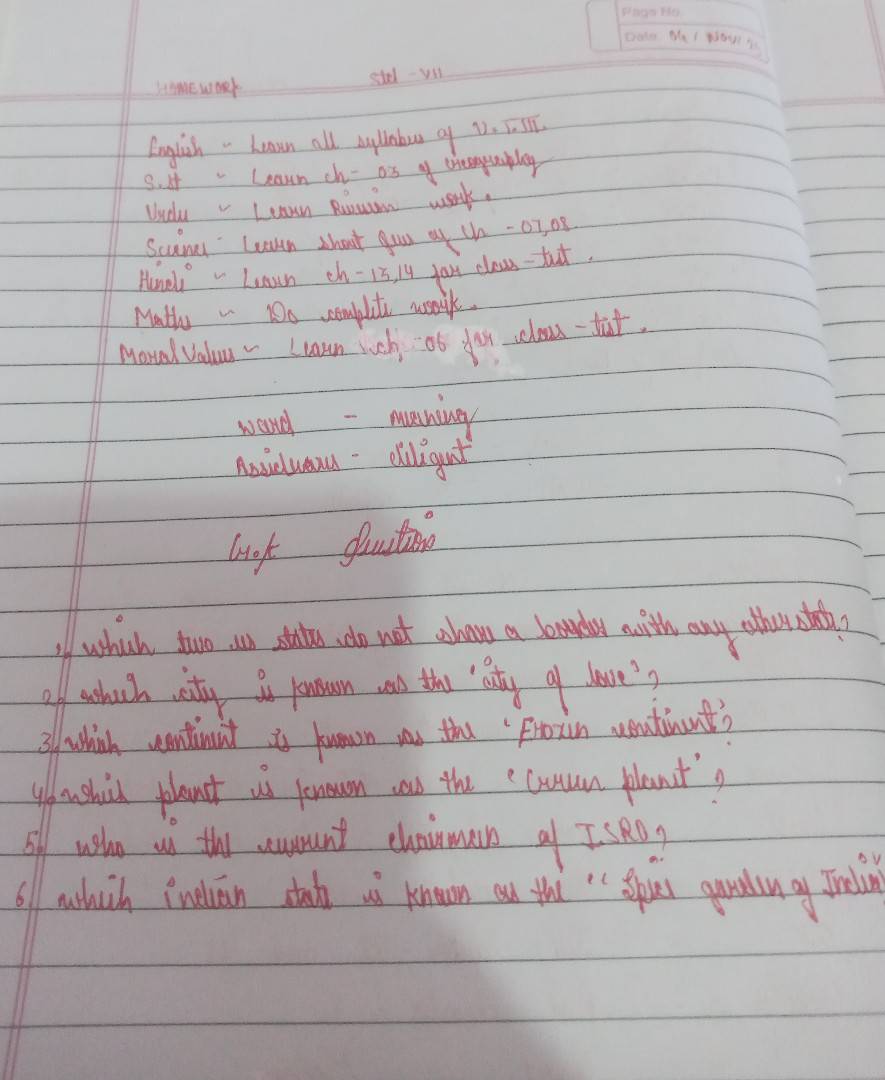 Page No.
Date 04 / Nov/ 25
HOMEWORK Std - VII
English - Learn all syllabus of U.T.III.
S.st - Learn ch- 03 of Geography
Urdu - Learn Rivision work.
Science - Learn short ques of ch - 07,08
Hindi - Learn ch-13,14 for class-test.
Maths - Do complete work.
Moral Values - Learn ch- 06 for class-test.
Word - meaning
Assiduous - diligent
G.K Question
1. which two us states do not share a border with any other state?
2. which city is known as the 'city of love'?
3. which continent is known as the 'Frozen continent'?
4. which planet is known as the "Green planet"?
5. who is the current chairman of ISRO?
6. which indian state is known as the "Spies garden of India